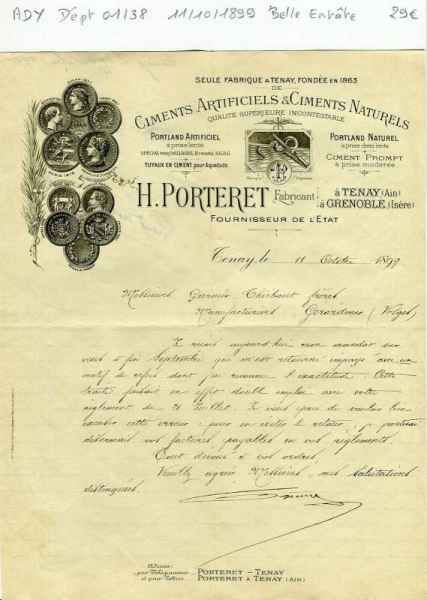 ADY Dépt 01/38 11/10/1899 Belle Entête 29€
SEULE FABRIQUE à TENAY, FONDÉE EN 1863
DE
CIMENTS ARTIFICIELS & CIMENTS NATURELS
QUALITÉ SUPÉRIEURE INCONTESTABLE
PORTLAND ARTIFICIEL
à prise lente
TUYAUX EN CIMENT pour Aqueducs
PORTLAND NATUREL
à prise demi lente
CIMENT PROMPT
à prise moderée
H. PORTERET Fabricant
à TENAY (Ain)
à GRENOBLE (Isère)
FOURNISSEUR DE L'ETAT
Tenay, le 11 Octobre 1899
Messieurs Garnier Thiebaut frères
Manufacturiers Gerardmer (Vosges)
Je reçois aujourd'hui mon mandat sur
vous à fin Septembre qui m'est retourné impayé avec un
motif de refus dont je reconnais l'exactitude. Cette
traite faisait en effet double emploi avec votre
règlement de Juillet. Je vous prie de vouloir bien
excuser cette erreur
vos factures payables en vos règlements.
Tout dévoué à vos ordres
Veuillez agréer, Messieurs, mes salutations
distinguées.
Adresse:
pour Télégrammes PORTERET - TENAY
et pour Lettres PORTERET à TENAY (AIN)